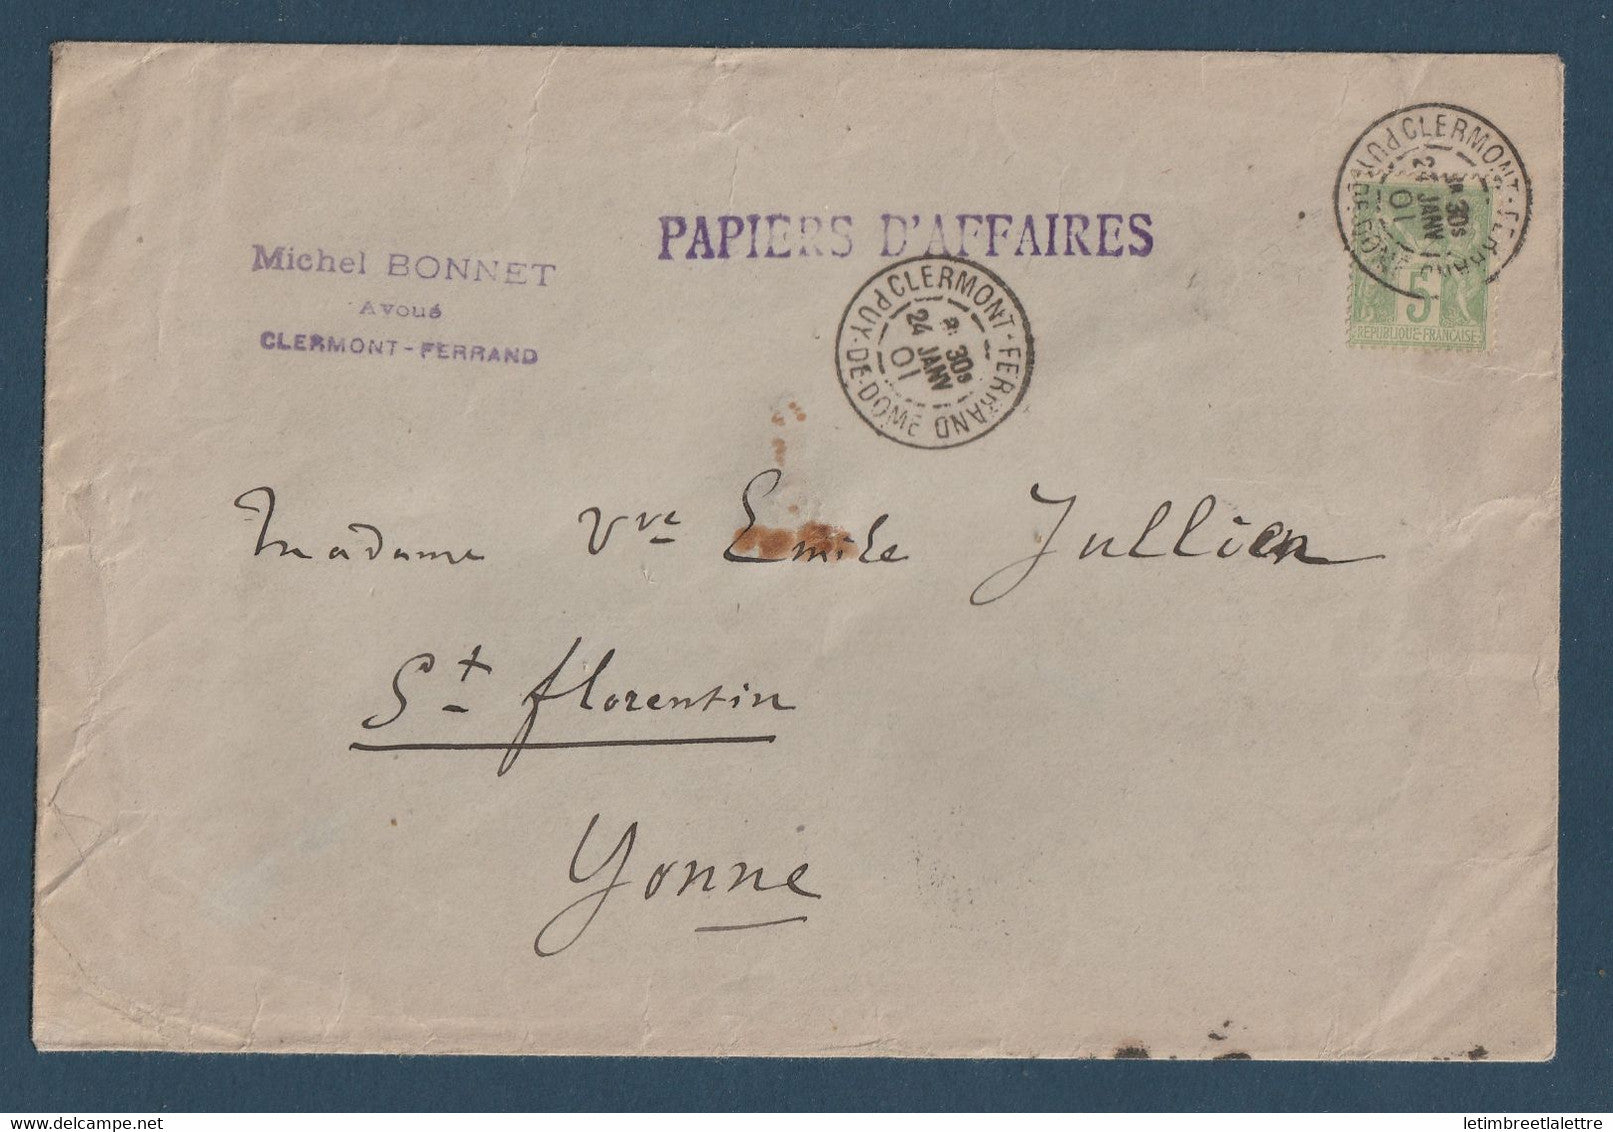 PAPIERS D'AFFAIRES
Michel BONNET
Avoué
CLERMONT-FERRAND
CLERMONT-FERRAND
30s
24 JANV
01
PUY-DE-DOME
CLERMONT-FERRAND
30s
24 JANV
01
PUY-DE-DOME
5
REPUBLIQUE FRANÇAISE
Madame Vve Emile Jullien
St florentin
Yonne
letimbreetlalettre